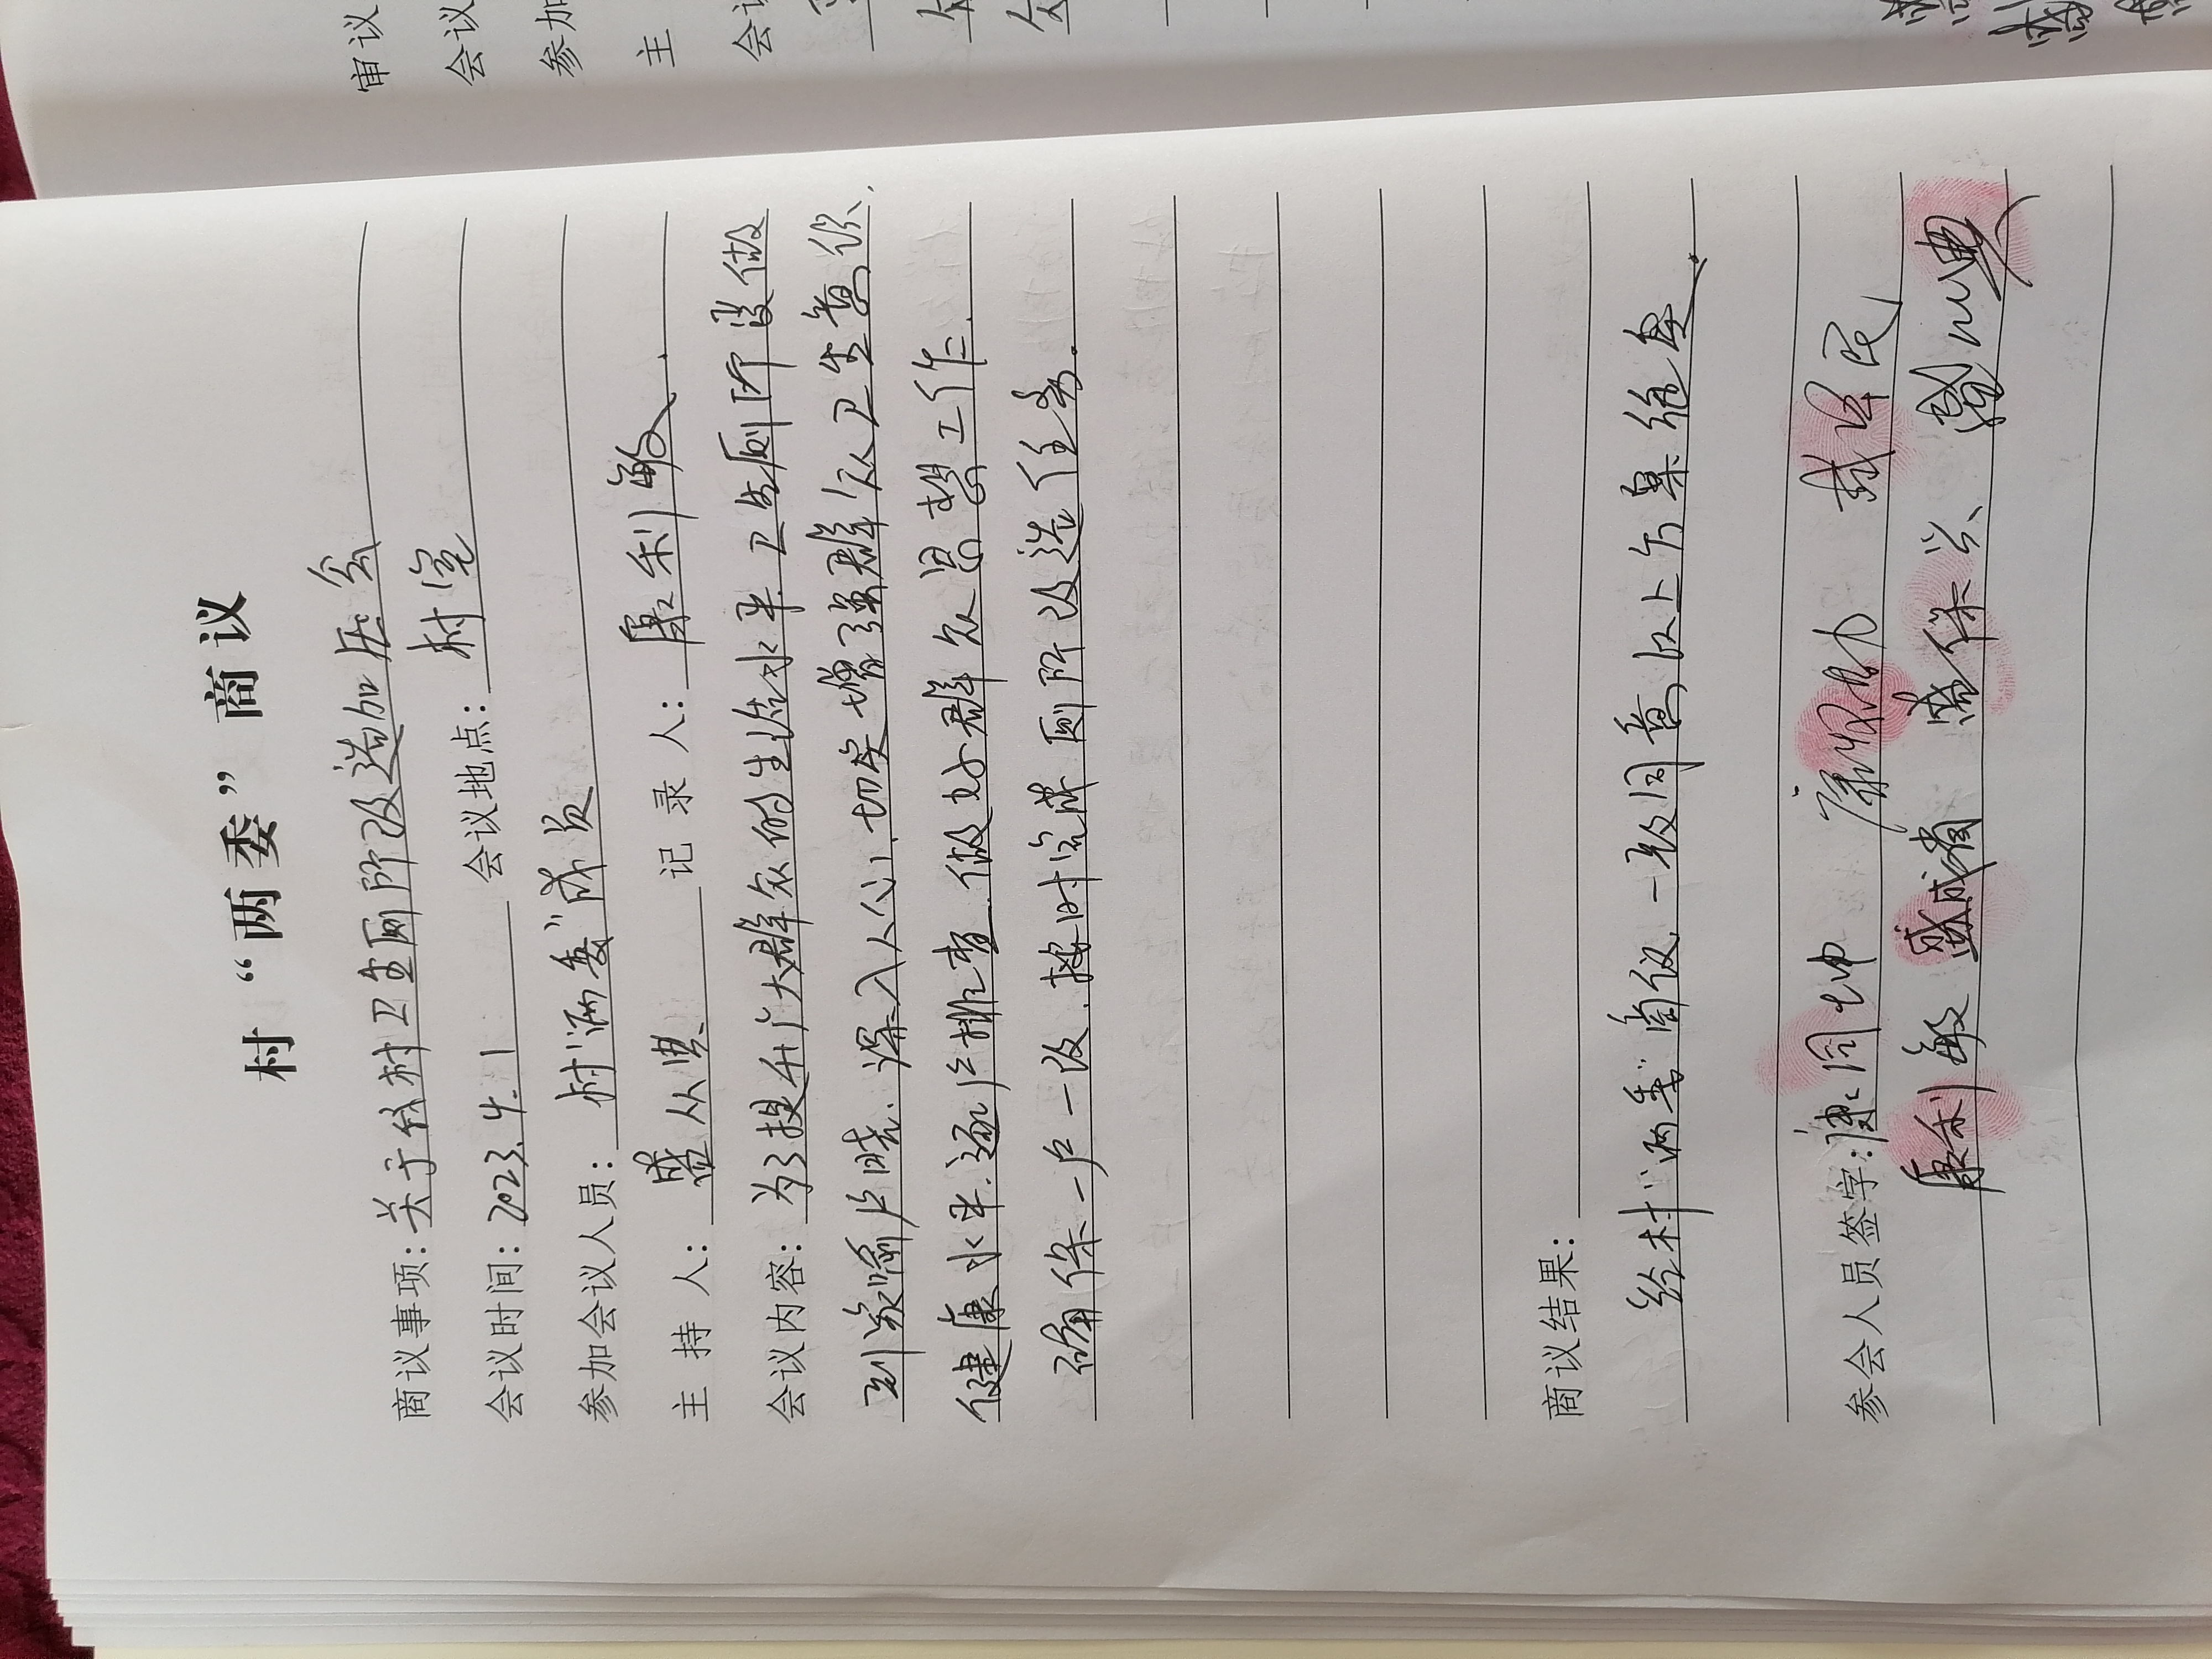 村“两委”商议
商议事项: 关于我村卫生厕所改造加压会
会议时间: 2023.4.1 会议地点: 村室
参加会议人员: 村“两委”成员
主持人: 盛从典 记录人: 康利敏.
会议内容: 为了提升广大群众的生活水平.卫生厕所要做
到家喻户晓.深入人心,切实增强群众卫生意识,
健康水平.逐户排查.做好群众思想工作.
确保一户一改.按时完成厕所改造任务。
商议结果:
经村“两委”商议一致同意以上方案.
参会人员签字: 康同坤 康 民
康利敏 盛成 盛保兴 盛从典
审议
会议
参加
主
会议